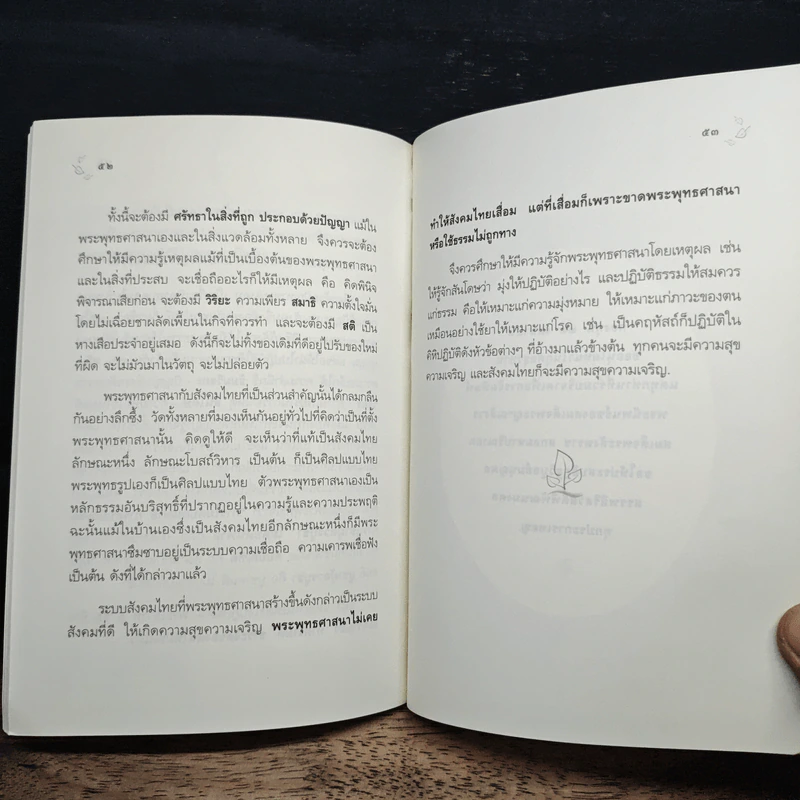 ๕๒
ทั้งนี้จะต้องมี ศรัทธาในสิ่งที่ถูก ประกอบด้วยปัญญา แม้ใน
พระพุทธศาสนาเองและในสิ่งแวดล้อมทั้งหลาย จึงควรจะต้อง
ศึกษาให้มีความรู้เหตุผลแม้ที่เป็นเบื้องต้นของพระพุทธศาสนา
และในสิ่งที่ประสบ จะเชื่อถืออะไรก็ให้มีเหตุผล คือ คิดพินิจ
พิจารณาเสียก่อน จะต้องมี วิริยะ ความเพียร สมาธิ ความตั้งใจมั่น
โดยไม่เฉื่อยชาผลัดเพี้ยนในกิจที่ควรทำ และจะต้องมี สติ เป็น
หางเสือประจำอยู่เสมอ ดังนี้ก็จะไม่ทิ้งของเดิมที่ดีอยู่ไปรับของใหม่
ที่ผิด จะไม่มัวเมาในวัตถุ จะไม่ปล่อยตัว
พระพุทธศาสนากับสังคมไทยที่เป็นส่วนสำคัญนั้นได้กลมกลืน
กันอย่างลึกซึ้ง วัดทั้งหลายที่มองเห็นกันอยู่ทั่วไปที่คิดว่าเป็นที่ตั้ง
พระพุทธศาสนานั้น คิดดูให้ดี จะเห็นว่าที่แท้เป็นสังคมไทย
ลักษณะหนึ่ง ลักษณะโบสถ์วิหาร เป็นต้น ก็เป็นศิลปแบบไทย
พระพุทธรูปเองก็เป็นศิลปแบบไทย ตัวพระพุทธศาสนาเองเป็น
หลักธรรมอันบริสุทธิ์ที่ปรากฏอยู่ในความรู้และความประพฤติ
ฉะนั้นแม้ในบ้านเองซึ่งเป็นสังคมไทยอีกลักษณะหนึ่งก็มีพระ
พุทธศาสนาซึมซาบอยู่เป็นระบบความเชื่อถือ ความเคารพเชื่อฟัง
เป็นต้น ดังที่ได้กล่าวมาแล้ว
ระบบสังคมไทยที่พระพุทธศาสนาสร้างขึ้นดังกล่าวเป็นระบบ
สังคมที่ดี ให้เกิดความสุขความเจริญ พระพุทธศาสนาไม่เคย
๕๓
ทำให้สังคมไทยเสื่อม แต่ที่เสื่อมก็เพราะขาดพระพุทธศาสนา
หรือใช้ธรรมไม่ถูกทาง
จึงควรศึกษาให้มีความรู้จักพระพุทธศาสนาโดยเหตุผล เช่น
ให้รู้จักสันโดษว่า มุ่งให้ปฏิบัติอย่างไร และปฏิบัติธรรมให้สมควร
แก่ธรรม คือให้เหมาะแก่ความมุ่งหมาย ให้เหมาะแก่ภาวะของตน
เหมือนอย่างใช้ยาให้เหมาะแก่โรค เช่น เป็นคฤหัสถ์ก็ปฏิบัติใน
คิหิปฏิบัติดังหัวข้อต่างๆ ที่อ้างมาแล้วข้างต้น ทุกคนจะมีความสุข
ความเจริญ และสังคมไทยก็จะมีความสุขความเจริญ.